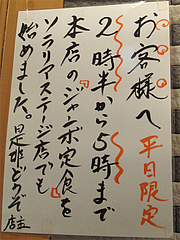 お客様へ 平日限定
2時半から5時まで
本店の「ジャンボ定食」を
ソラリアステージ店でも
始めました。是非どうぞ 店主